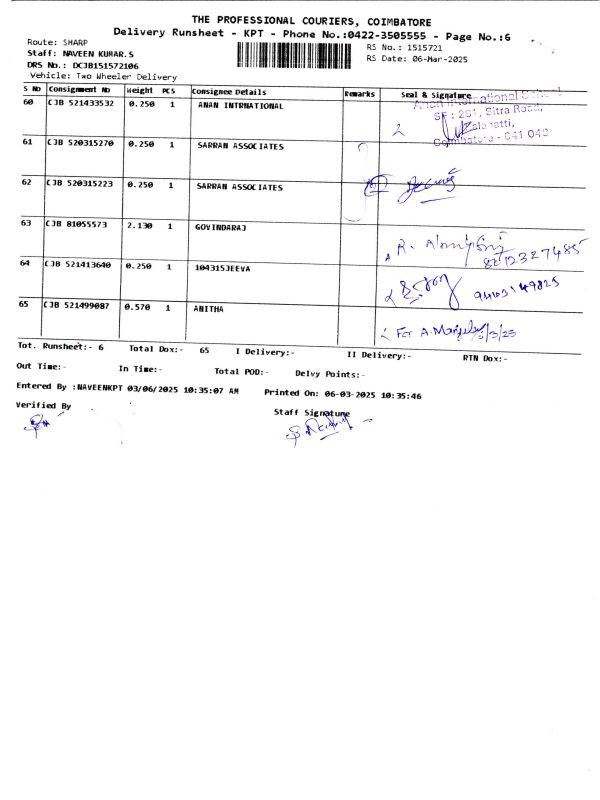 THE PROFESSIONAL COURIERS, COIMBATORE
Delivery Runsheet - KPT - Phone No.:0422-3505555 - Page No.:6
Route: SHARP
RS No.: 1515721
Staff: NAVEEN KUMAR.S
RS Date: 06-Mar-2025
DRS No.: DCJB151572106
Vehicle: Two Wheeler Delivery
S No Consignment No Weight PCS Consignee Details Remarks Seal & Signature
60 CJB 521433532 0.250 1 ANAN INTRNATIONAL
Anan International School
SF : 291, Sitra Road,
Coimbatore - 641 048
61 CJB 520315270 0.250 1 SARRAN ASSOCIATES
62 CJB 520315223 0.250 1 SARRAN ASSOCIATES
63 CJB 81055573 2.130 1 GOVINDARAJ
R.
64 CJB 521413640 0.250 1 104315JEEVA
65 CJB 521499087 0.570 1 ANITHA
For A.
Tot. Runsheet:- 6 Total Dox:- 65 I Delivery:- II Delivery:- RTN Dox:-
Out Time:- In Time:- Total POD:- Delvy Points:-
Entered By :NAVEENKPT 03/06/2025 10:35:07 AM Printed On: 06-03-2025 10:35:46
Verified By Staff Signature